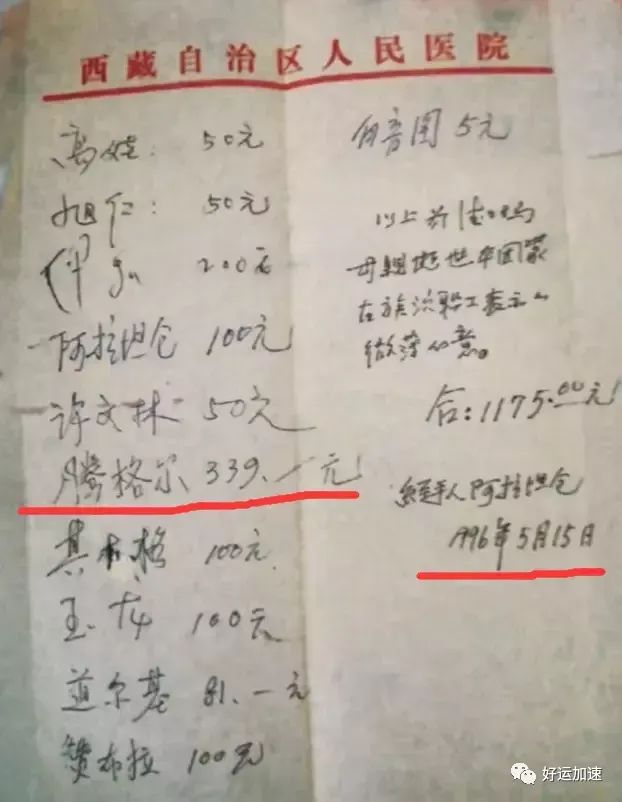 西藏自治区人民医院
高娃: 50元
旭仁: 50元
200元
阿拉坦仓 100元
许文林 50元
腾格尔 339.一元
其木格 100元
玉龙 100元
道尔基 81.一元
赞布拉 100元
白音图 5元
以上为德
母親逝世中国蒙
古族演职工表示
微薄心意。
合:1175.00元
经手人阿拉坦仓
1996年5月15日
好运加速